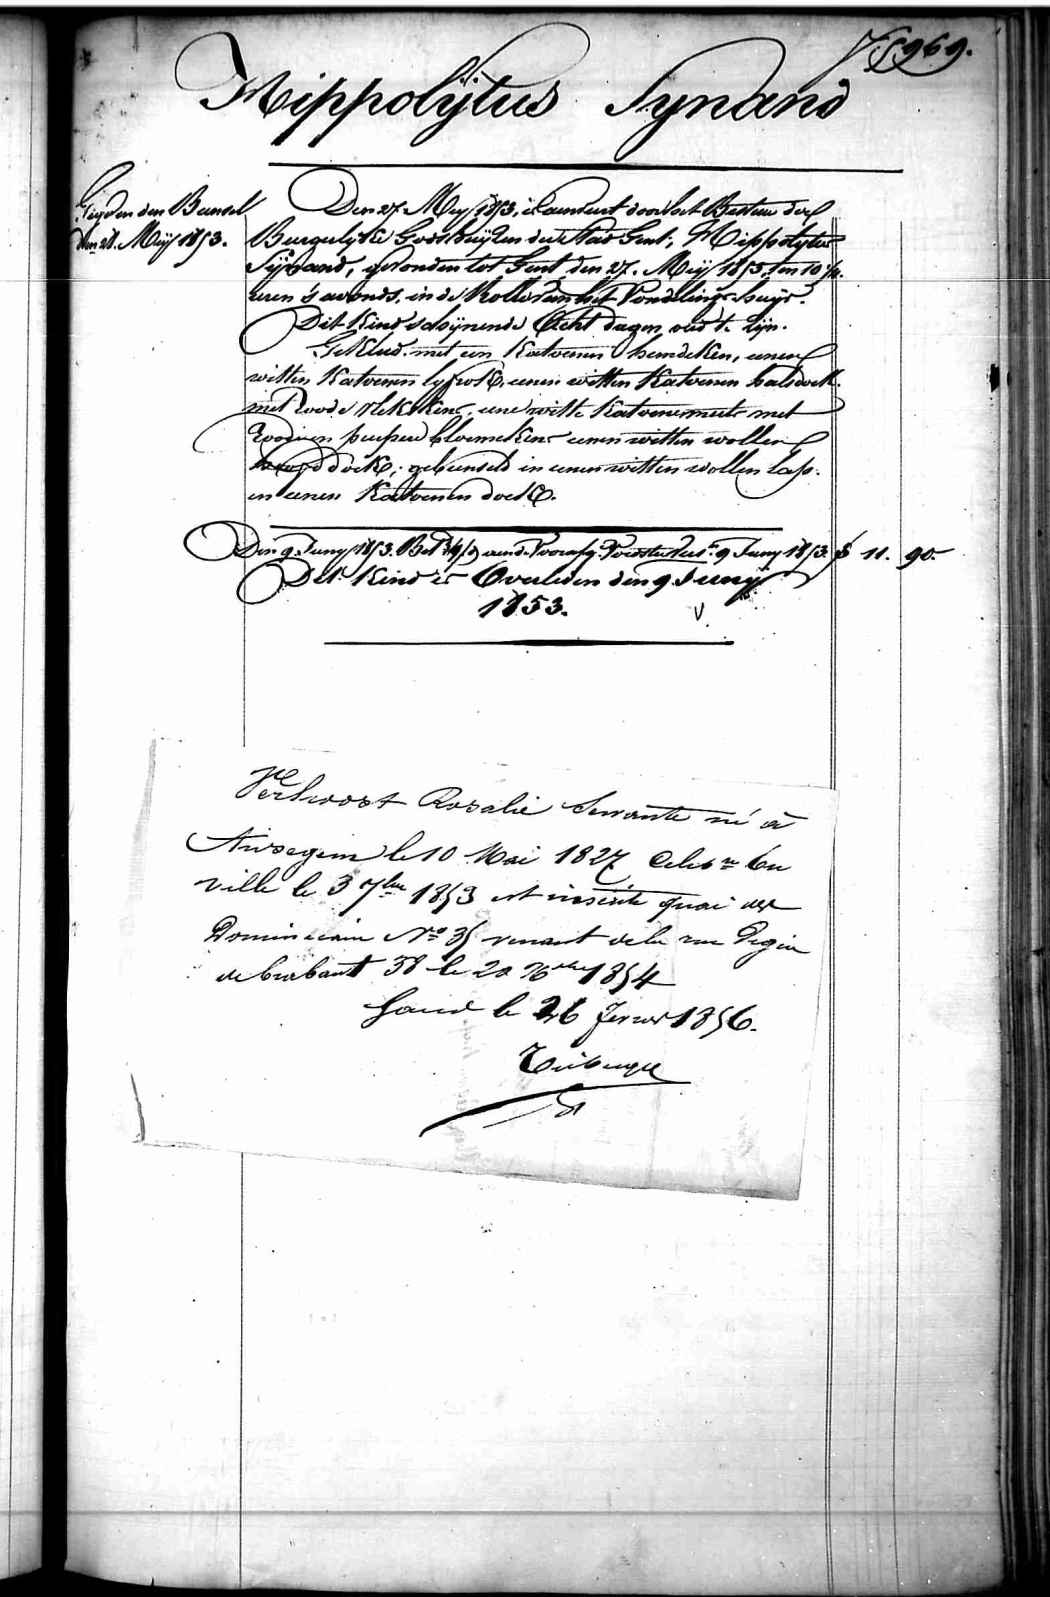 969.
Hippolÿtus Synand
den Bundel
den 28. Meÿ 1853.
Den 27. Meÿ 1853, is aanveert door het Bestuer der
Burgerlÿke Godshuÿzen der Stad Gent, Hippolÿtus
Sÿnand, gevonden tot Gent den 27. Meÿ 1853, ten 10
uren 's avonds, in de Rolle van het Vondelinghuÿs.
Dit Kind schÿnende Acht dagen oud te zÿn.
Gekleed met een Katoenen hemdeken, eenen
witten Katoenen lyfrok, eenen witten Katoenen halsdoek
met roode vlekskens, eene witte Katoene muts met
bloemekens eenen witten wollen
doek, gebunseld in eenen witten wollen lap
en eenen Katoenen doek.
Den 9 Juny 1853. 9 Juny 1853 11. 90
Dit Kind is Overleden den 9 Juny
1853.
Rosalie Servante né à
le 10 Mai 1827 en
ville le 3 7bre 1853 est inscrite quai des
Dominicains No 35 venant de la rue
de brabant 38 le 20 1854
Gand le 26 1856.